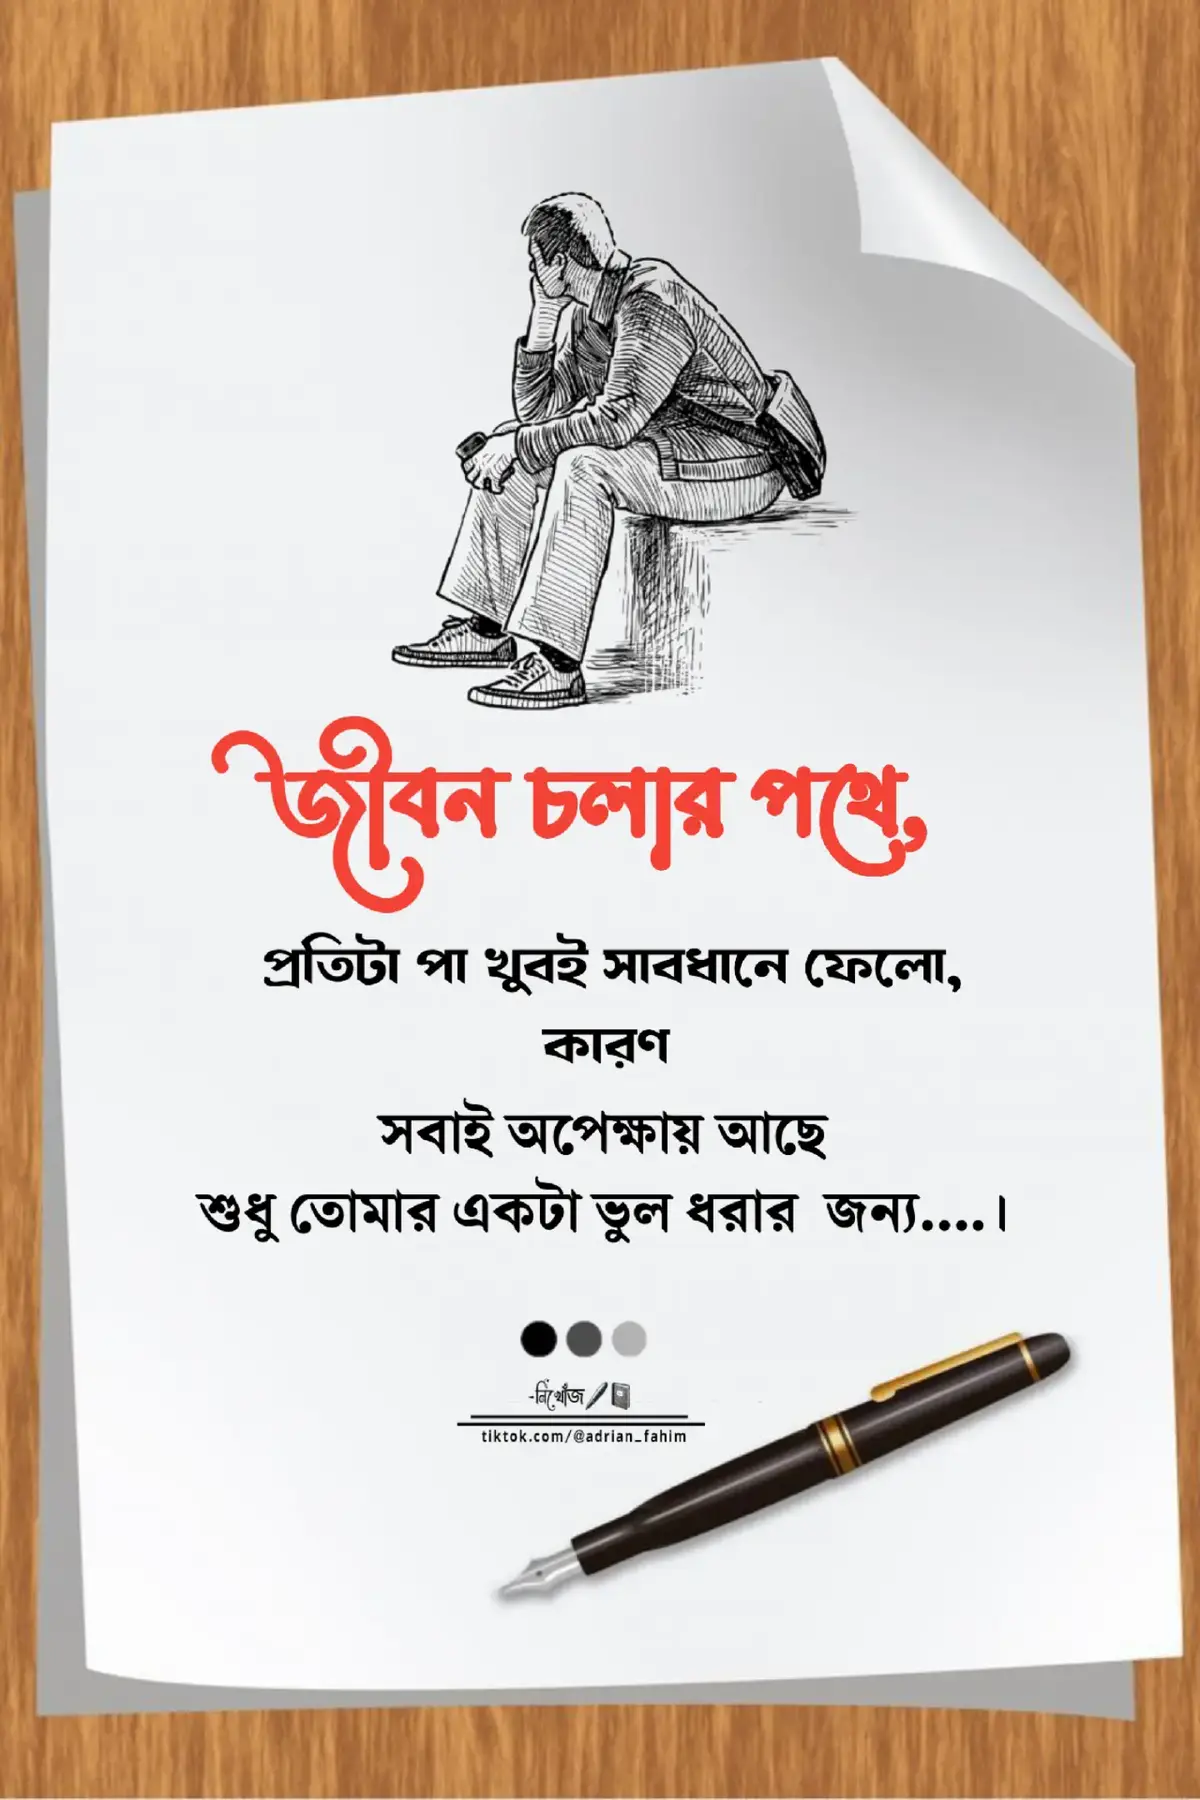 জীবন চলার পথে,
প্রতিটা পা খুবই সাবধানে ফেলো,
কারণ
সবাই অপেক্ষায় আছে
শুধু তোমার একটা ভুল ধরার জন্য....।
-নিখোঁজ
tiktok.com/@adrian_fahim